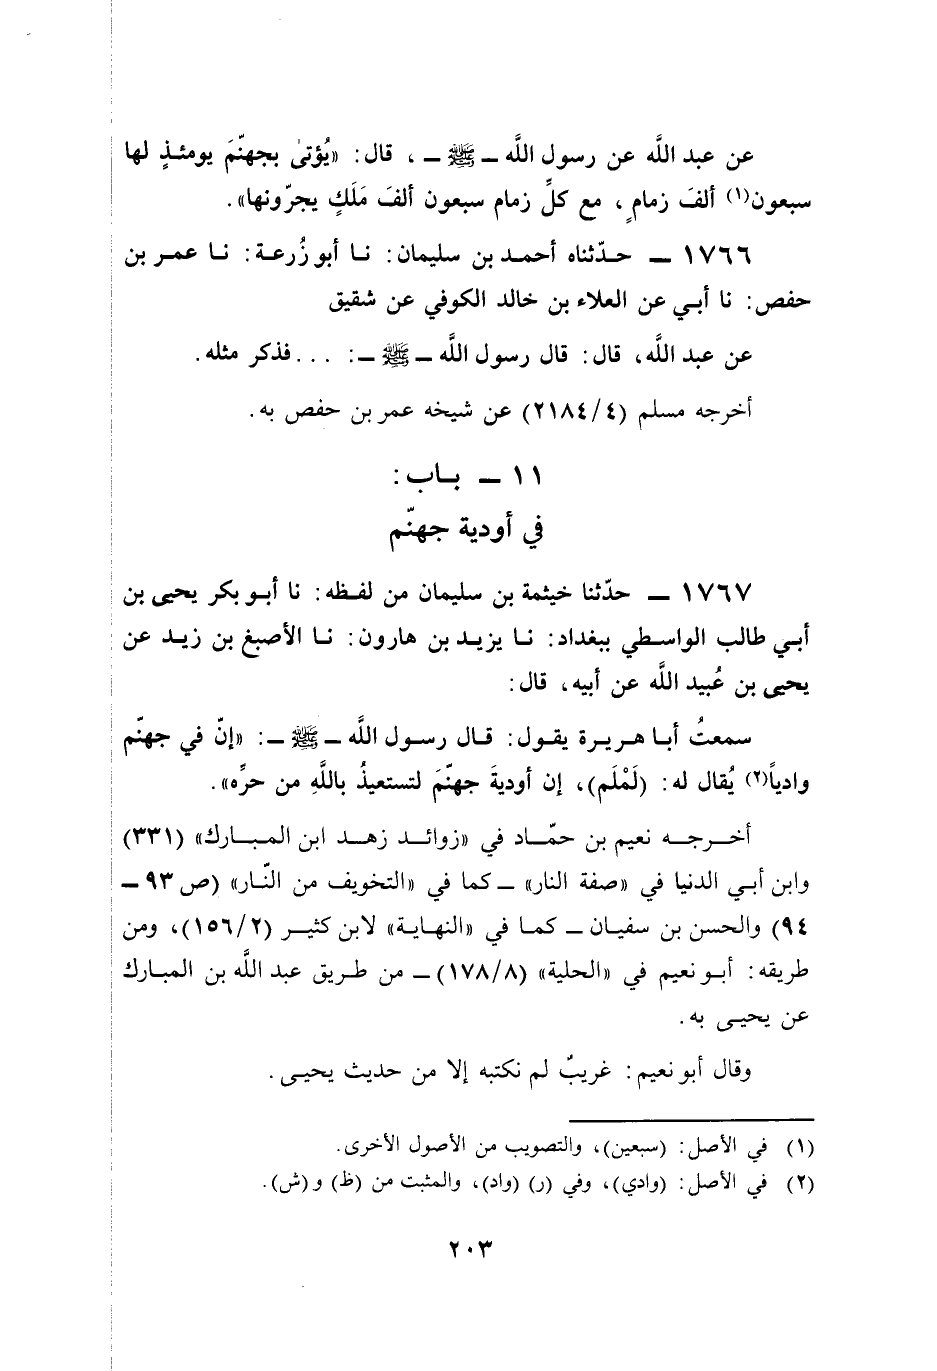 عن عبد اللَّه عن رسول اللَّه ــ ﷺ ــ ، قال: «يُؤتىٰ بجهنّمَ يومئـذٍ لها
سبعون(١) ألفَ زمامٍ، مع كلِّ زمام سبعون ألفَ مَلَكٍ يجرّونها».
١٧٦٦ ــ حـدّثناه أحمـد بن سليمان: نـا أبو زُرعـة: نـا عمـر بن
حفص: نا أبـي عن العلاء بن خالد الكوفي عن شقيق
عن عبد اللَّه، قال: قال رسول اللَّه ــ ﷺ ــ: ... فذكر مثله.
أخرجه مسلم (٢١٨٤/٤) عن شيخه عمر بن حفص به.
١١ ــ بـاب:
في أودية جهنّم
١٧٦٧ ــ حدّثنا خيثمة بن سليمان من لفـظه: نا أبـو بكر يحيى بن
أبـي طالب الواسـطي ببغداد: نـا يزيـد بن هارون: نـا الأصبغ بن زيـد عن
يحيى بن عُبيد اللَّه عن أبيه، قال:
سمعتُ أبـا هـريـرة يقـول: قـال رسـول اللَّه ــ ﷺ ــ: «إنّ في جهنّم
وادياً(٢) يُقال له: (لَمْلَم)، إن أوديةَ جهنّمَ لتستعيذُ باللَّهِ من حرِّه».
أخـرجـه نعيم بن حمّـاد في «زوائـد زهـد ابن المبـارك» (٣٣١)
وابن أبـي الدنيا في «صفة النار» ــ كما في «التخويف من النّـار» (ص ٩٣ ــ
٩٤) والحسن بن سفيـان ــ كمـا في «النهـايـة» لابن كثيـر (١٥٦/٢)، ومن
طريقه: أبـو نعيم في «الحلية» (١٧٨/٨) ــ من طـريق عبـد اللَّه بن المبـارك
عن يحيـى به.
وقال أبو نعيم: غريبٌ لم نكتبه إلا من حديث يحيـى.
(١) في الأصل: (سبعين)، والتصويب من الأصول الأخرى.
(٢) في الأصل: (وادي)، وفي (ر) (واد)، والمثبت من (ظ) و (ش).
٢٠٣